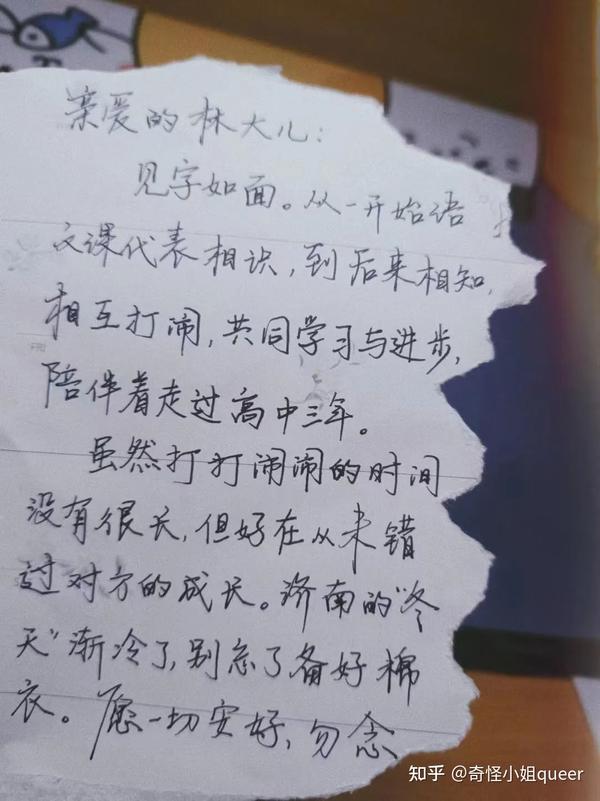 亲爱的林大儿：
见字如面。从一开始语
文课代表相识，到后来相知，
相互打闹，共同学习与进步，
陪伴着走过高中三年。
虽然打打闹闹的时间
没有很长，但好在从未错
过对方的成长。济南的“冬
天”渐冷了，别忘了备好棉
衣。愿一切安好，勿念
知乎 @奇怪小姐queer